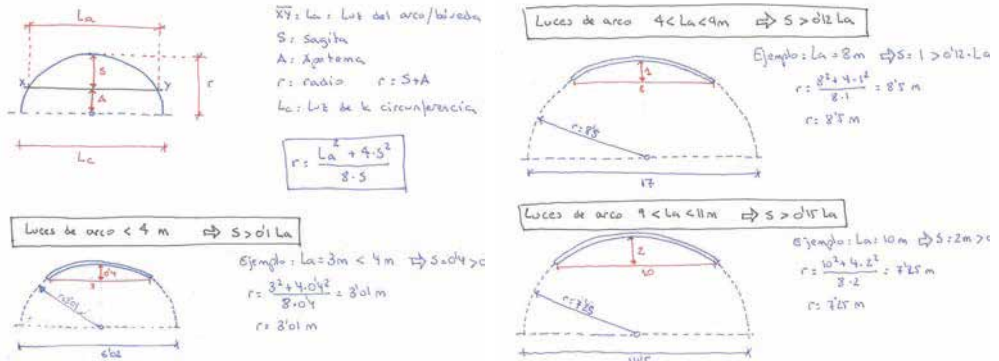 La
X
Y
S
A
r
Lc
XY: La: Luz del arco/bóveda
S: Sagita
A: Apotema
r: radio r: S+A
Lc: Luz de la circunferencia
r = La² + 4·S² / 8·S
Luces de arco < 4 m ⇨ S > 0'1 La
0'4
3
r=3'01
6'02
Ejemplo: La = 3m < 4m ⇨ S = 0'4 > 0
r = 3² + 4·0'4² / 8·0'4 = 3'01 m
r = 3'01 m
Luces de arco 4 < La < 9m ⇨ S > 0'12 La
1
8
r=8'5
17
Ejemplo: La = 8m ⇨ S = 1 > 0'12·La
r = 8² + 4·1² / 8·1 = 8'5 m
r = 8'5 m
Luces de arco 9 < La < 11m ⇨ S > 0'15 La
2
10
r=7'25
Ejemplo: La = 10m ⇨ S = 2m > 0
r = 10² + 4·2² / 8·2 = 7'25 m
r = 7'25 m